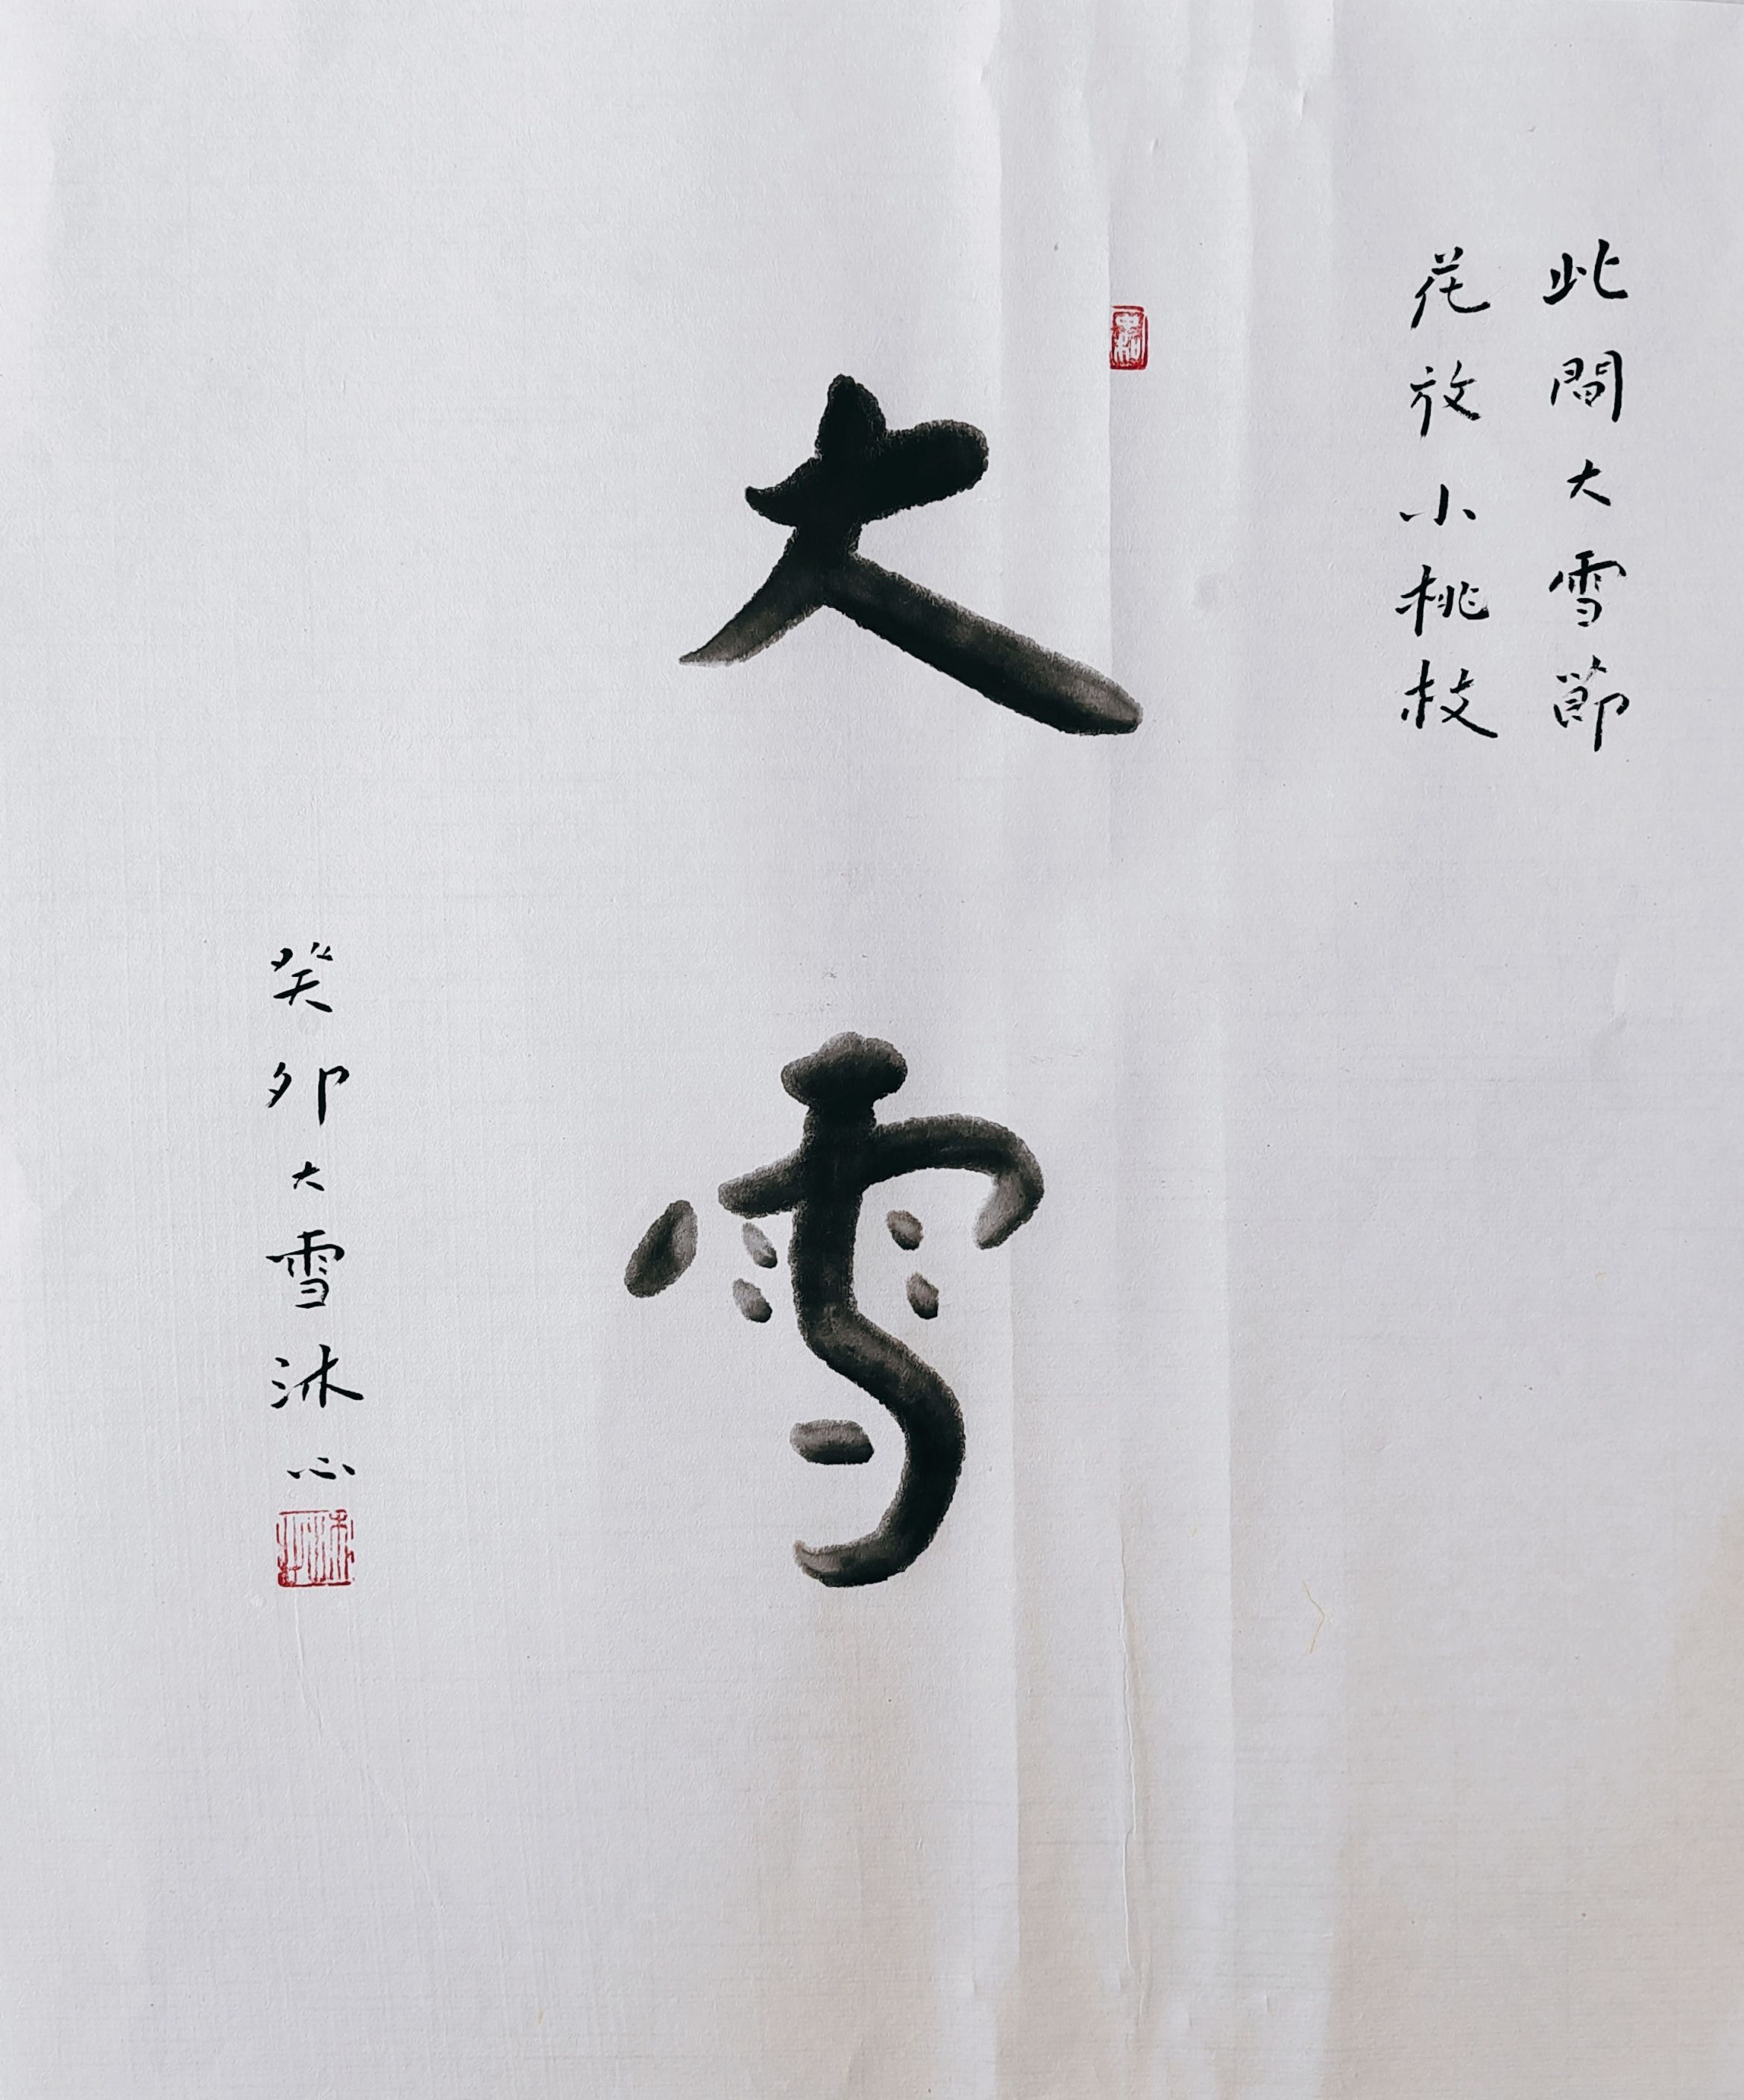 此間大雪節
花放小桃枝
大雪
癸卯大雪沐心